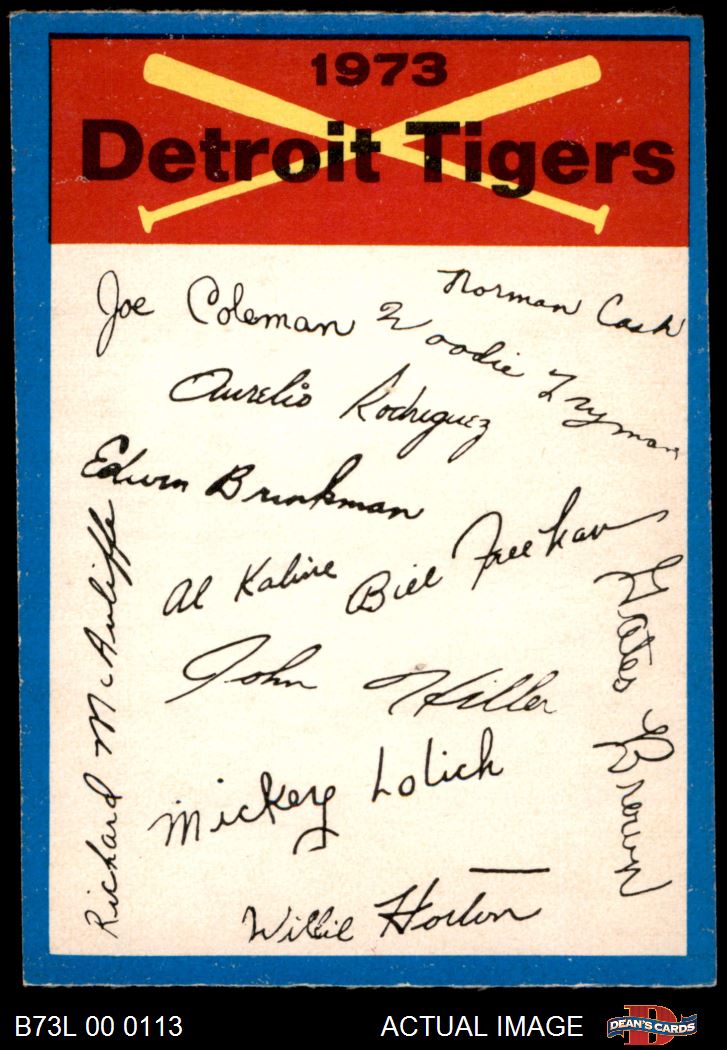 1973
Detroit Tigers
Joe Coleman
Norman Cash
Woodie Fryman
Aurelio Rodriguez
Edwin Brinkman
Al Kaline
Bill Freehan
Richard McAuliffe
Gates Brown
John Hiller
Mickey Lolich
Willie Horton
B73L 00 0113
ACTUAL IMAGE
D
DEAN'S CARDS